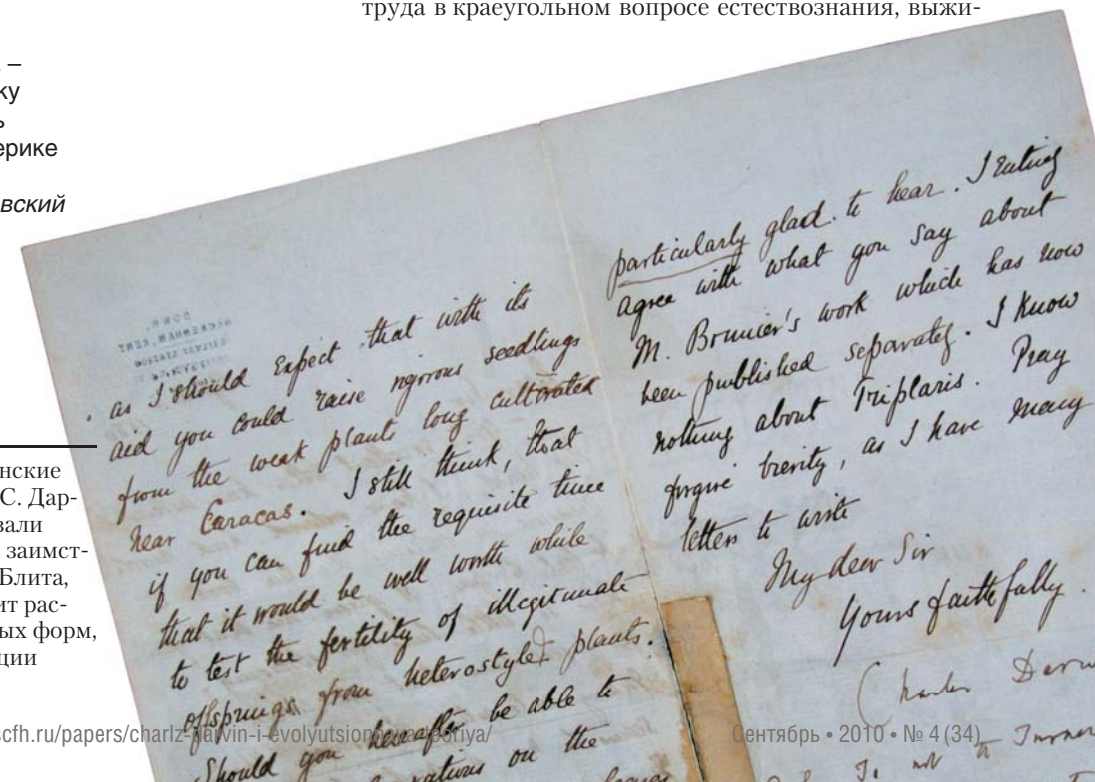 труда в краеугольном вопросе естествознания, выжи-
–
ку
ь
ерике
вский
нские
С. Дар-
вали
заимст-
Блита,
ит рас-
ых форм,
ции
as I should expect that with its
aid you could raise vigorous seedlings
from the weak plants long cultivated
near Caracas. I still think, that
if you can find the requisite time
that it would be well worth while
to test the fertility of illegitimate
offsprings from heterostyled plants.
Should you hereafter be able to
on the
particularly glad to hear. I entirely
agree with what you say about
M. Bonnier's work which has now
been published separately. I know
nothing about Triplaris. Pray
forgive brevity, as I have many
letters to write
My dear Sir
Yours faithfully.
Charles Darw
scfh.ru/papers/charlz-darvin-i-evolyutsionnaya-teoriya/
Сентябрь • 2010 • № 4 (34)